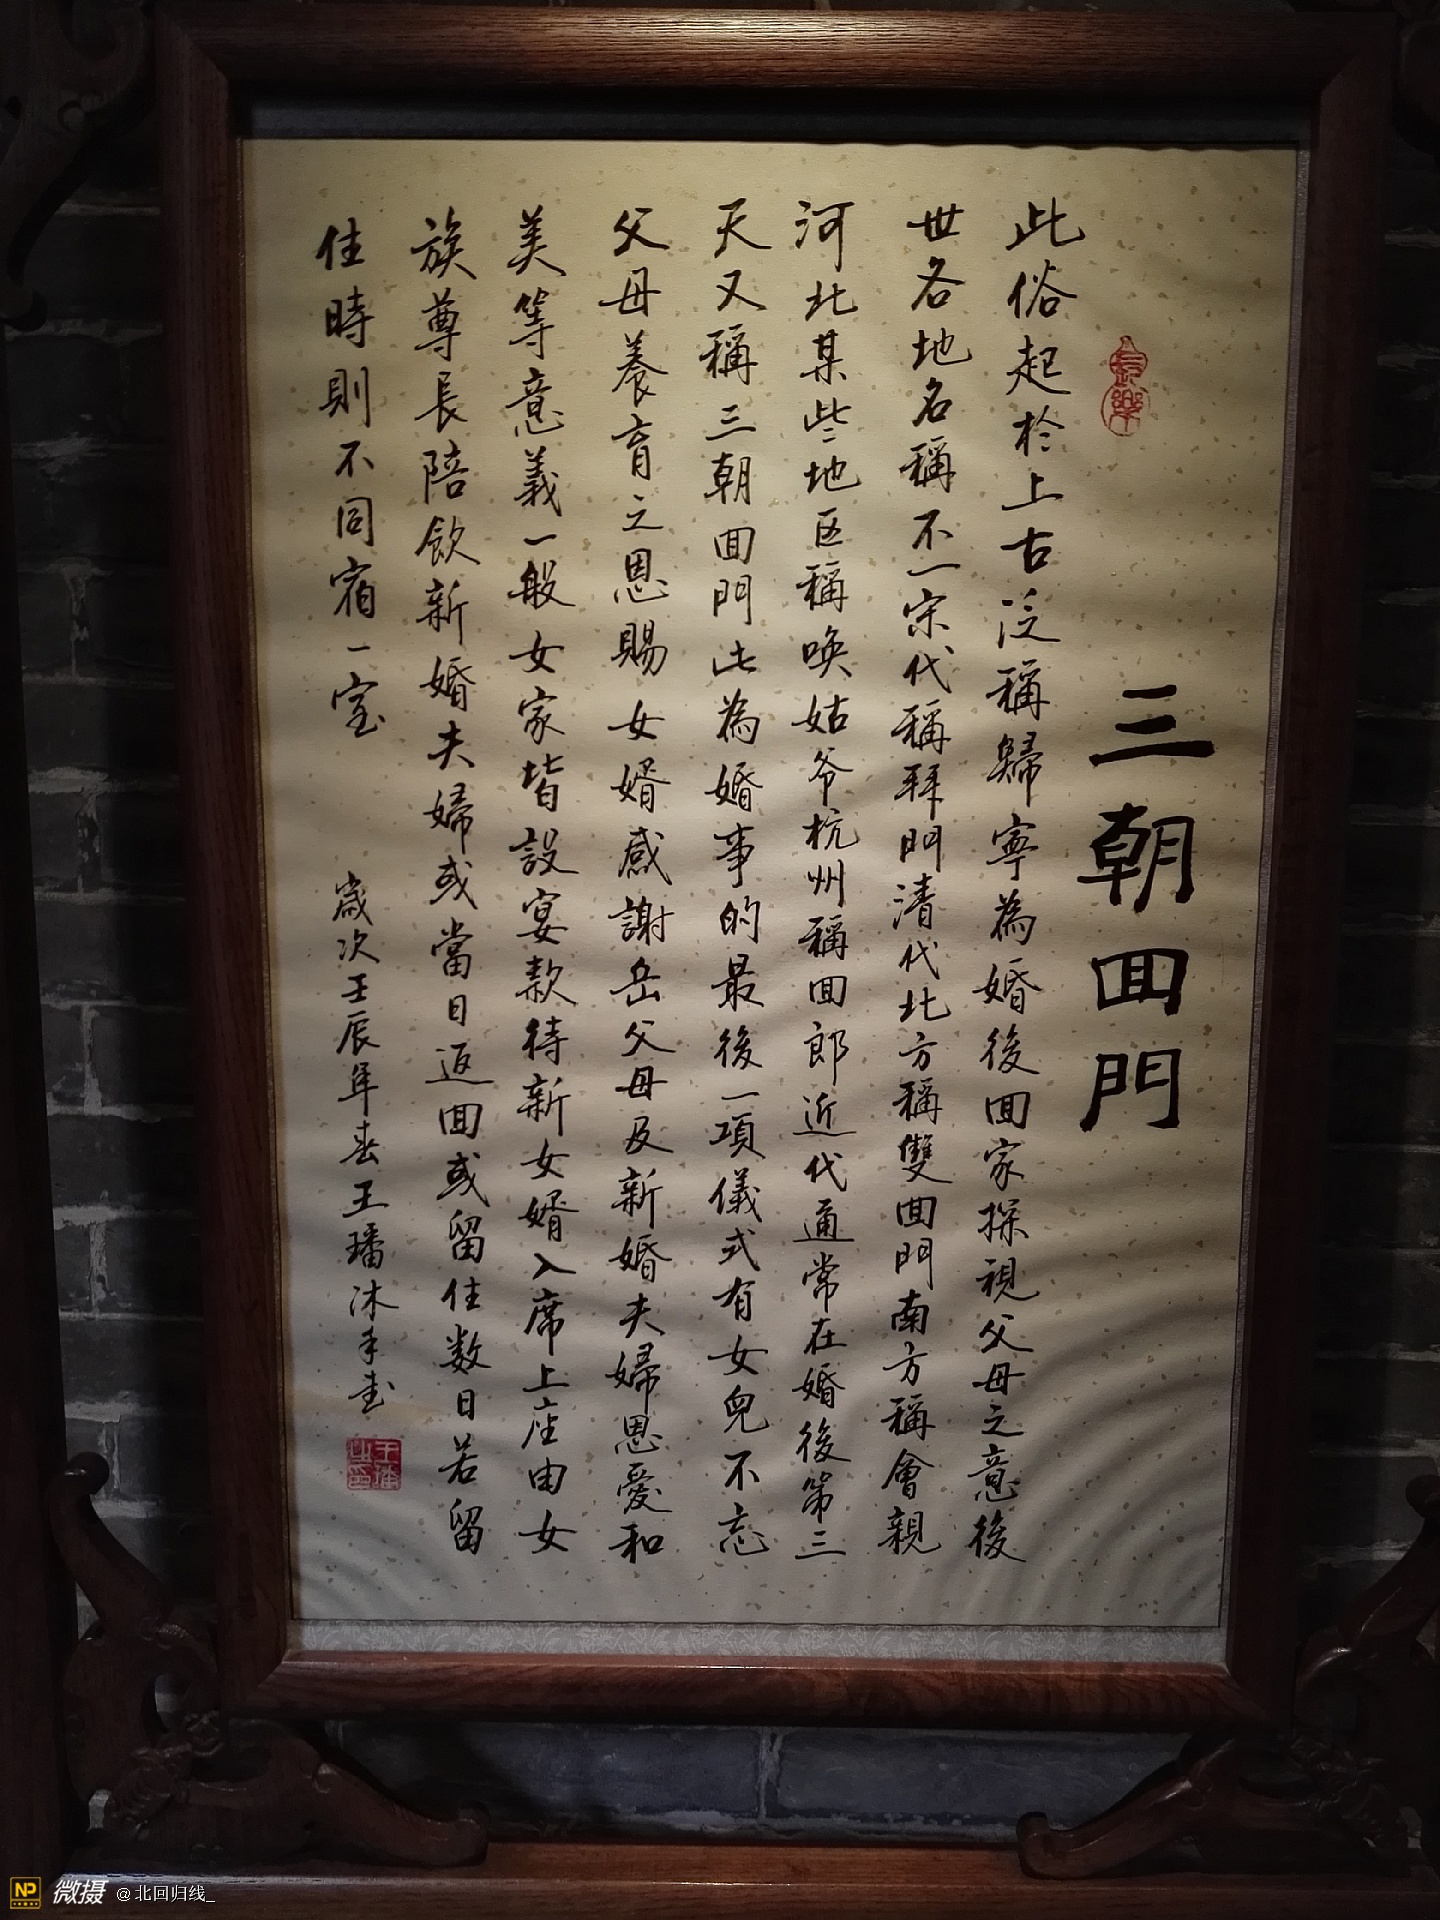 三朝囬門
此俗起於上古泛稱歸寧為婚後囬家探視父母之意後
世各地名稱不一宋代稱拜門清代北方稱雙囬門南方稱會親
河北某些地区稱唤姑爷杭州稱囬郎近代通常在婚後第三
天又稱三朝囬門此為婚事的最後一項儀式有女兒不忘
父母養育之恩賜女婿感謝岳父母及新婚夫婦恩愛和
美等意義一般女家皆設宴款待新女婿入席上座由女
族尊長陪飲新婚夫婦或當日返囬或留住数日若留
住時則不同宿一室
歲次壬辰年春王璠沐手書
長樂
王璠之印
NP 微摄 @北回归线_